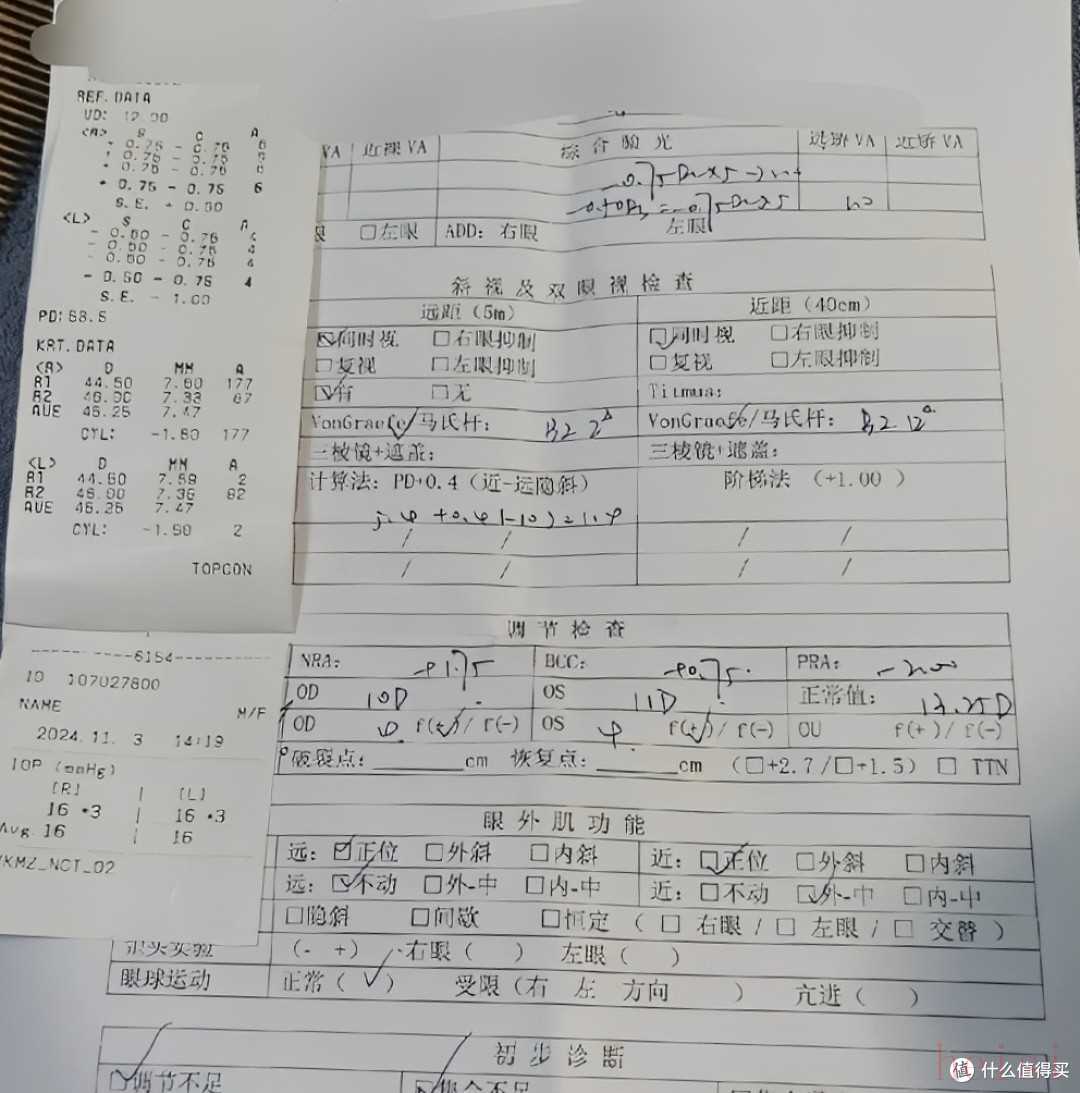 REF. DATA
VD: 12.00
<R> S C A
+ 0.75 - 0.75 6
+ 0.75 - 0.75 5
+ 0.75 - 0.75 6
+ 0.75 - 0.75 6
S.E. + 0.50
<L> S C A
- 0.50 - 0.75 4
- 0.50 - 0.75 4
- 0.50 - 0.75 4
- 0.50 - 0.75 4
S.E. - 1.00
PD: 68.5
KRT. DATA
<R> D MM A
R1 44.50 7.60 177
R2 46.00 7.33 87
AVE 45.25 7.47
CYL: -1.50 177
<L> D MM A
R1 44.50 7.59 2
R2 46.00 7.35 92
AVE 45.25 7.47
CYL: -1.50 2
TOPCON
6154
ID 107027800
NAME M/F
2024.11. 3 14:19
IOP (mmHg)
[R] | [L]
16 *3 | 16 *3
Avg. 16 | 16
KMZ_NCT_02
VA 近裸VA 综合验光 远矫VA 近矫VA
眼 □左眼 ADD: 右眼 左眼
斜视及双眼视检查
远距(5m) 近距(40cm)
同时视 □右眼抑制 同时视 □右眼抑制
□复视 □左眼抑制 □复视 □左眼抑制
有 □无 Titmus:
VonGraefe/马氏杆: VonGraefe/马氏杆: 12△
三棱镜+遮盖: 三棱镜+遮盖:
计算法: PD*0.4(近-远隐斜) 阶梯法 (+1.00 )
/ / / /
/ / / /
调节检查
NRA: +1.75 BCC: +0.75 PRA: -2.00
OD 10D OS 11D 正常值: 13.25D
OD φ f(+)/f(-) OS φ f(+)/f(-) OU f(+)/f(-)
破裂点: cm 恢复点: cm (□+2.7/□+1.5) □ TTN
眼外肌功能
远: 正位 □外斜 □内斜 近: 正位 □外斜 □内斜
远: 不动 □外-中 □内-中 近: □不动 外-中 □内-中
□隐斜 □间歇 □恒定 (□ 右眼/□ 左眼/□ 交替)
实验 (- +) 右眼( ) 左眼( )
眼球运动 正常(√) 受限(右 左 方向 ) 亢进( )
初步诊断
调节不足 集合不足
值 什么值得买